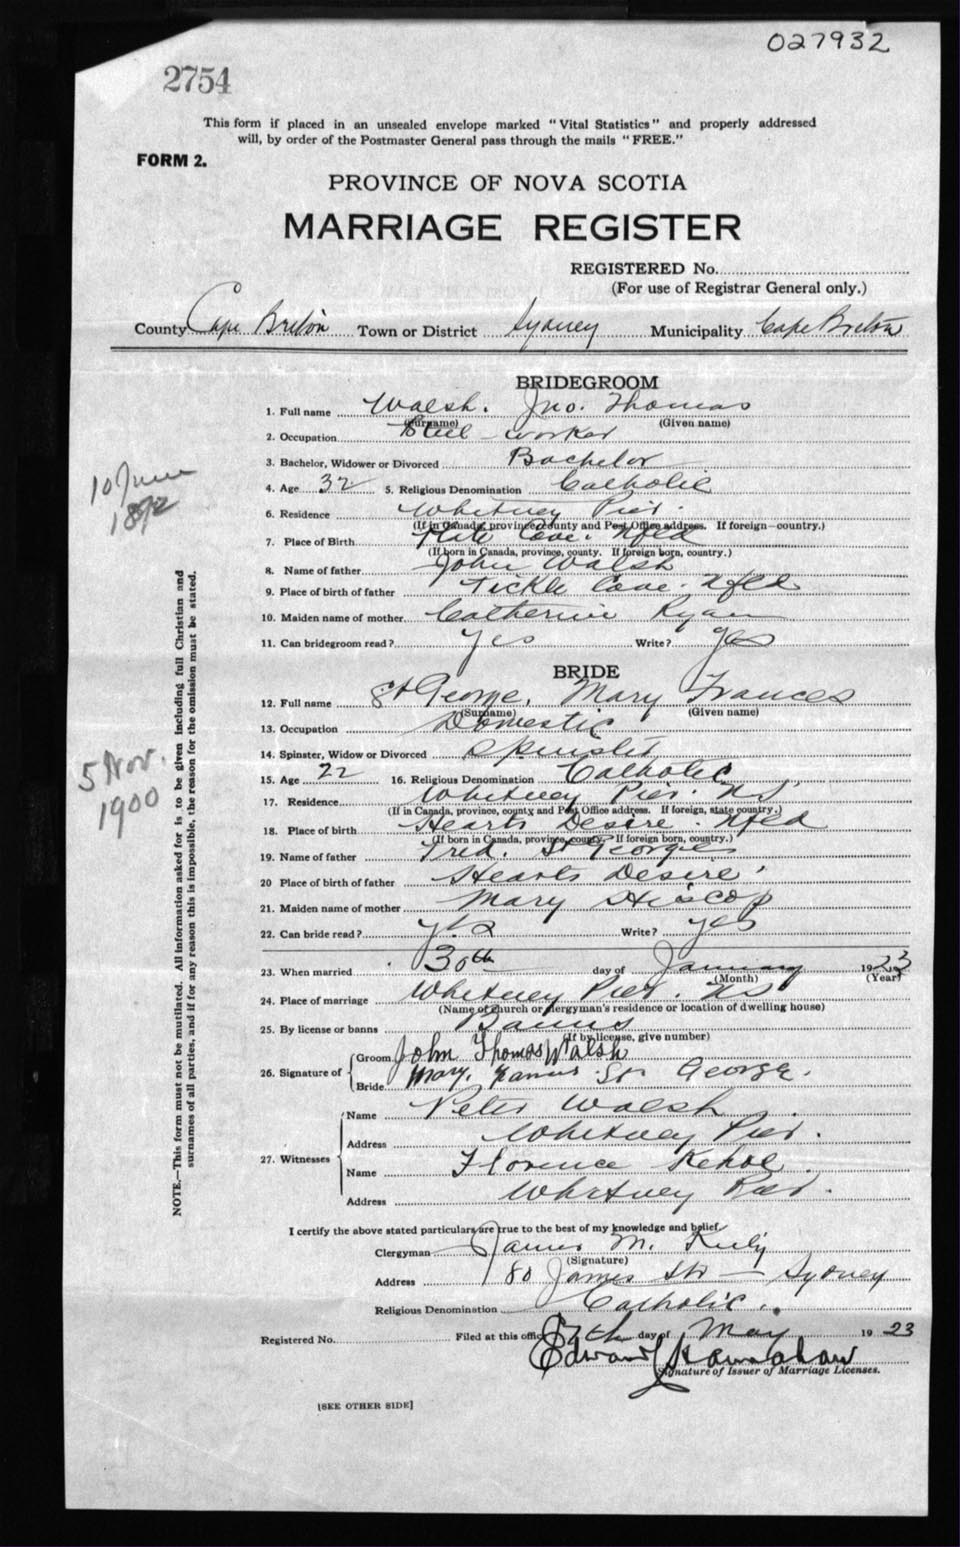 027932
2754
This form if placed in an unsealed envelope marked "Vital Statistics" and properly addressed
will, by order of the Postmaster General pass through the mails "FREE."
FORM 2.
PROVINCE OF NOVA SCOTIA
MARRIAGE REGISTER
REGISTERED No.
(For use of Registrar General only.)
County Cape Breton Town or District Sydney Municipality Cape Breton
BRIDEGROOM
1. Full name Walsh. Jno. Thomas
(Surname) (Given name)
2. Occupation Steel worker
3. Bachelor, Widower or Divorced Bachelor
4. Age 32 5. Religious Denomination Catholic
10 June
6. Residence Whitney Pier.
(If in Canada, province, county and Post Office address. If foreign—country.)
7. Place of Birth Plate Cove. Nfld
(If born in Canada, province, county. If foreign born, country.)
8. Name of father John Walsh
9. Place of birth of father Tickle Cove. Nfld
10. Maiden name of mother Catherine Ryan
11. Can bridegroom read? Yes Write? Yes
BRIDE
12. Full name St George, Mary Frances
(Surname) (Given name)
13. Occupation Domestic
14. Spinster, Widow or Divorced Spinster
15. Age 22 16. Religious Denomination Catholic
5 Nov.
1900
17. Residence Whitney Pier. N.S.
(If in Canada, province, county and Post Office address. If foreign, state country.)
18. Place of birth Hearts Desire. Nfld
(If born in Canada, province, county. If foreign born, country.)
19. Name of father Fred. St George
20 Place of birth of father Hearts Desire
21. Maiden name of mother Mary
22. Can bride read? yes Write? yes
23. When married 30th day of January 1923
(Month) (Year)
24. Place of marriage Whitney Pier. NS
(Name of church or clergyman's residence or location of dwelling house)
25. By license or banns Banns
(If by license, give number)
26. Signature of
Groom John Thomas Walsh
Bride Mary. Frances St George.
27. Witnesses
Name Peter Walsh
Address Whitney Pier.
Name Florence Kehoe.
Address Whitney Pier.
I certify the above stated particulars are true to the best of my knowledge and belief.
Clergyman James M. Kiely
(Signature)
Address 80 James St — Sydney
Religious Denomination Catholic.
Registered No. Filed at this office 7th day of May 1923
Edward
Signature of Issuer of Marriage Licenses.
[SEE OTHER SIDE]
NOTE.—This form must not be mutilated. All information asked for is to be given including full Christian and
surnames of all parties, and if for any reason this is impossible, the reason for the omission must be stated.